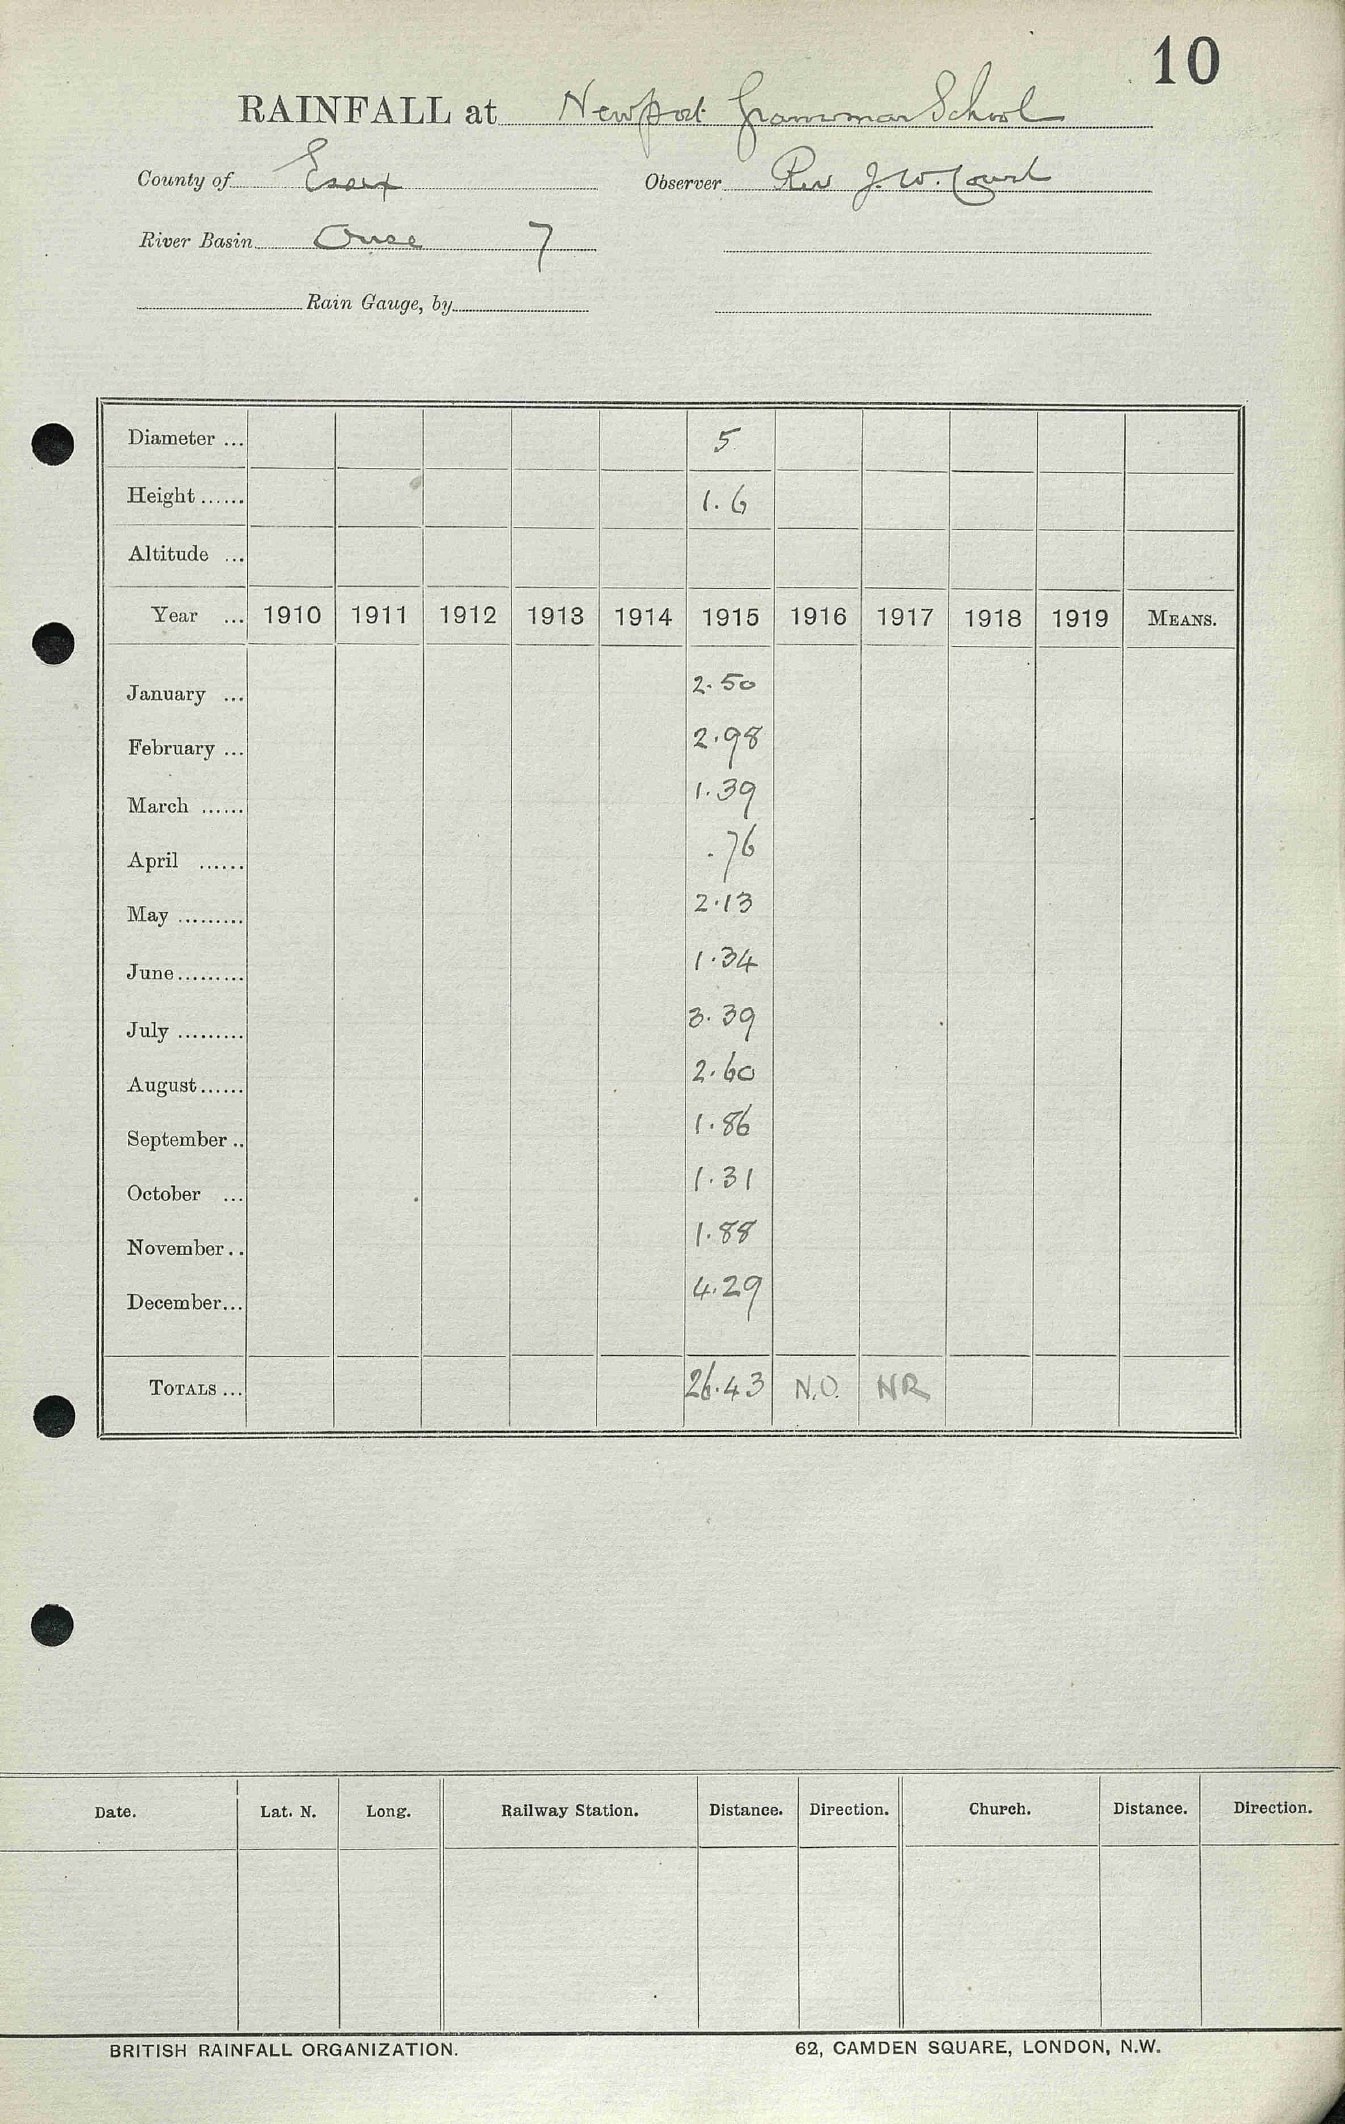 10
RAINFALL at Newport Grammar School
County of Essex Observer Rev J. W. Court
River Basin Ouse 7
Rain Gauge, by
Diameter ... 5
Height ...... 1.6
Altitude ...
Year ... 1910 1911 1912 1913 1914 1915 1916 1917 1918 1919 MEANS.
January ... 2.50
February ... 2.98
March ...... 1.39
April ...... .76
May ......... 2.13
June ......... 1.34
July ......... 3.39
August ...... 2.60
September .. 1.86
October ... 1.31
November .. 1.88
December ... 4.29
TOTALS ... 26.43 N.O. NR
Date. Lat. N. Long. Railway Station. Distance. Direction. Church. Distance. Direction.
BRITISH RAINFALL ORGANIZATION. 62, CAMDEN SQUARE, LONDON, N.W.